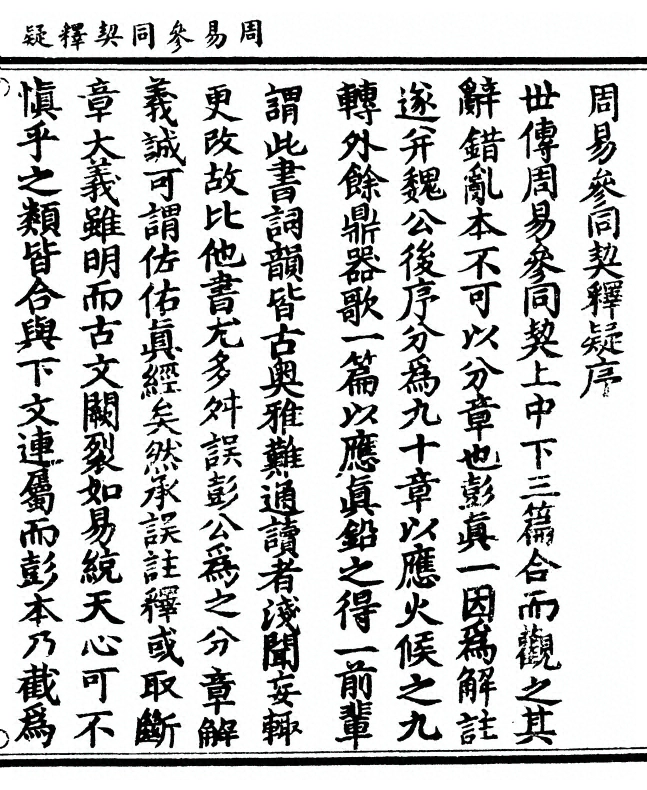 周易參同契釋疑
周易參同契釋疑序
世傳周易參同契上中下三篇合而觀之其
辭錯亂本不可以分章也彭眞一因爲解註
遂幷魏公後序分爲九十章以應火候之九
轉外餘鼎器歌一篇以應眞鉛之得一前輩
謂此書詞韻皆古奥雅難通讀者淺聞妄輒
更改故比他書尤多舛誤彭公爲之分章解
義誠可謂佐佑眞經矣然承誤註釋或取斷
章大義雖明而古文闕裂如易統天心可不
愼乎之類皆合與下文連屬而彭本乃截爲